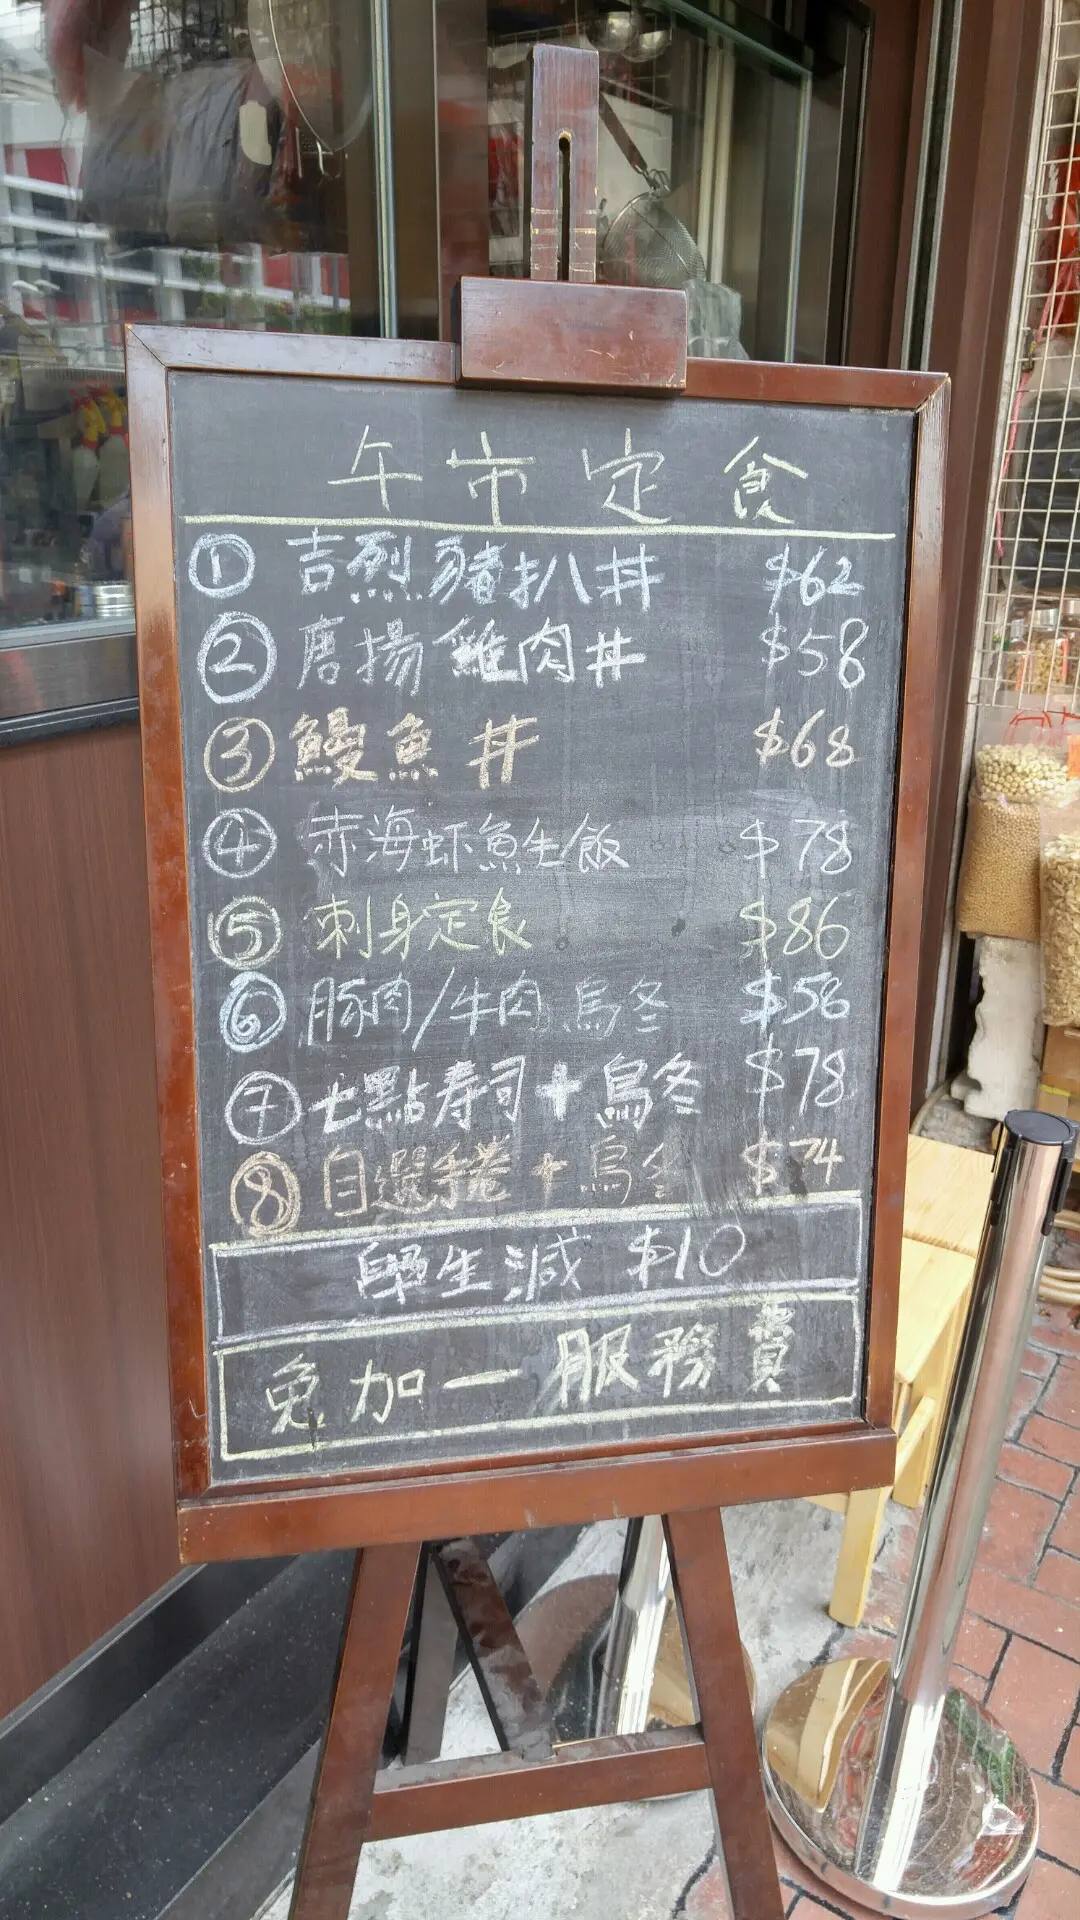 午市定食
① 吉烈豬扒丼 $62
② 唐揚雞肉丼 $58
③ 鰻魚丼 $68
④ 赤海虾魚生飯 $78
⑤ 刺身定食 $86
⑥ 豚肉/牛肉 烏冬 $58
⑦ 七點寿司+烏冬 $78
⑧ 自選手卷+烏冬 $74
學生減 $10
免加一服務費